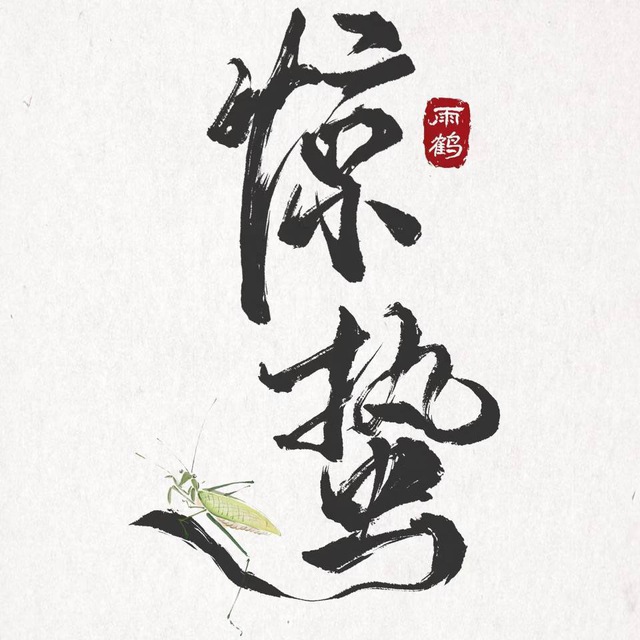 惊蛰
雨鹤